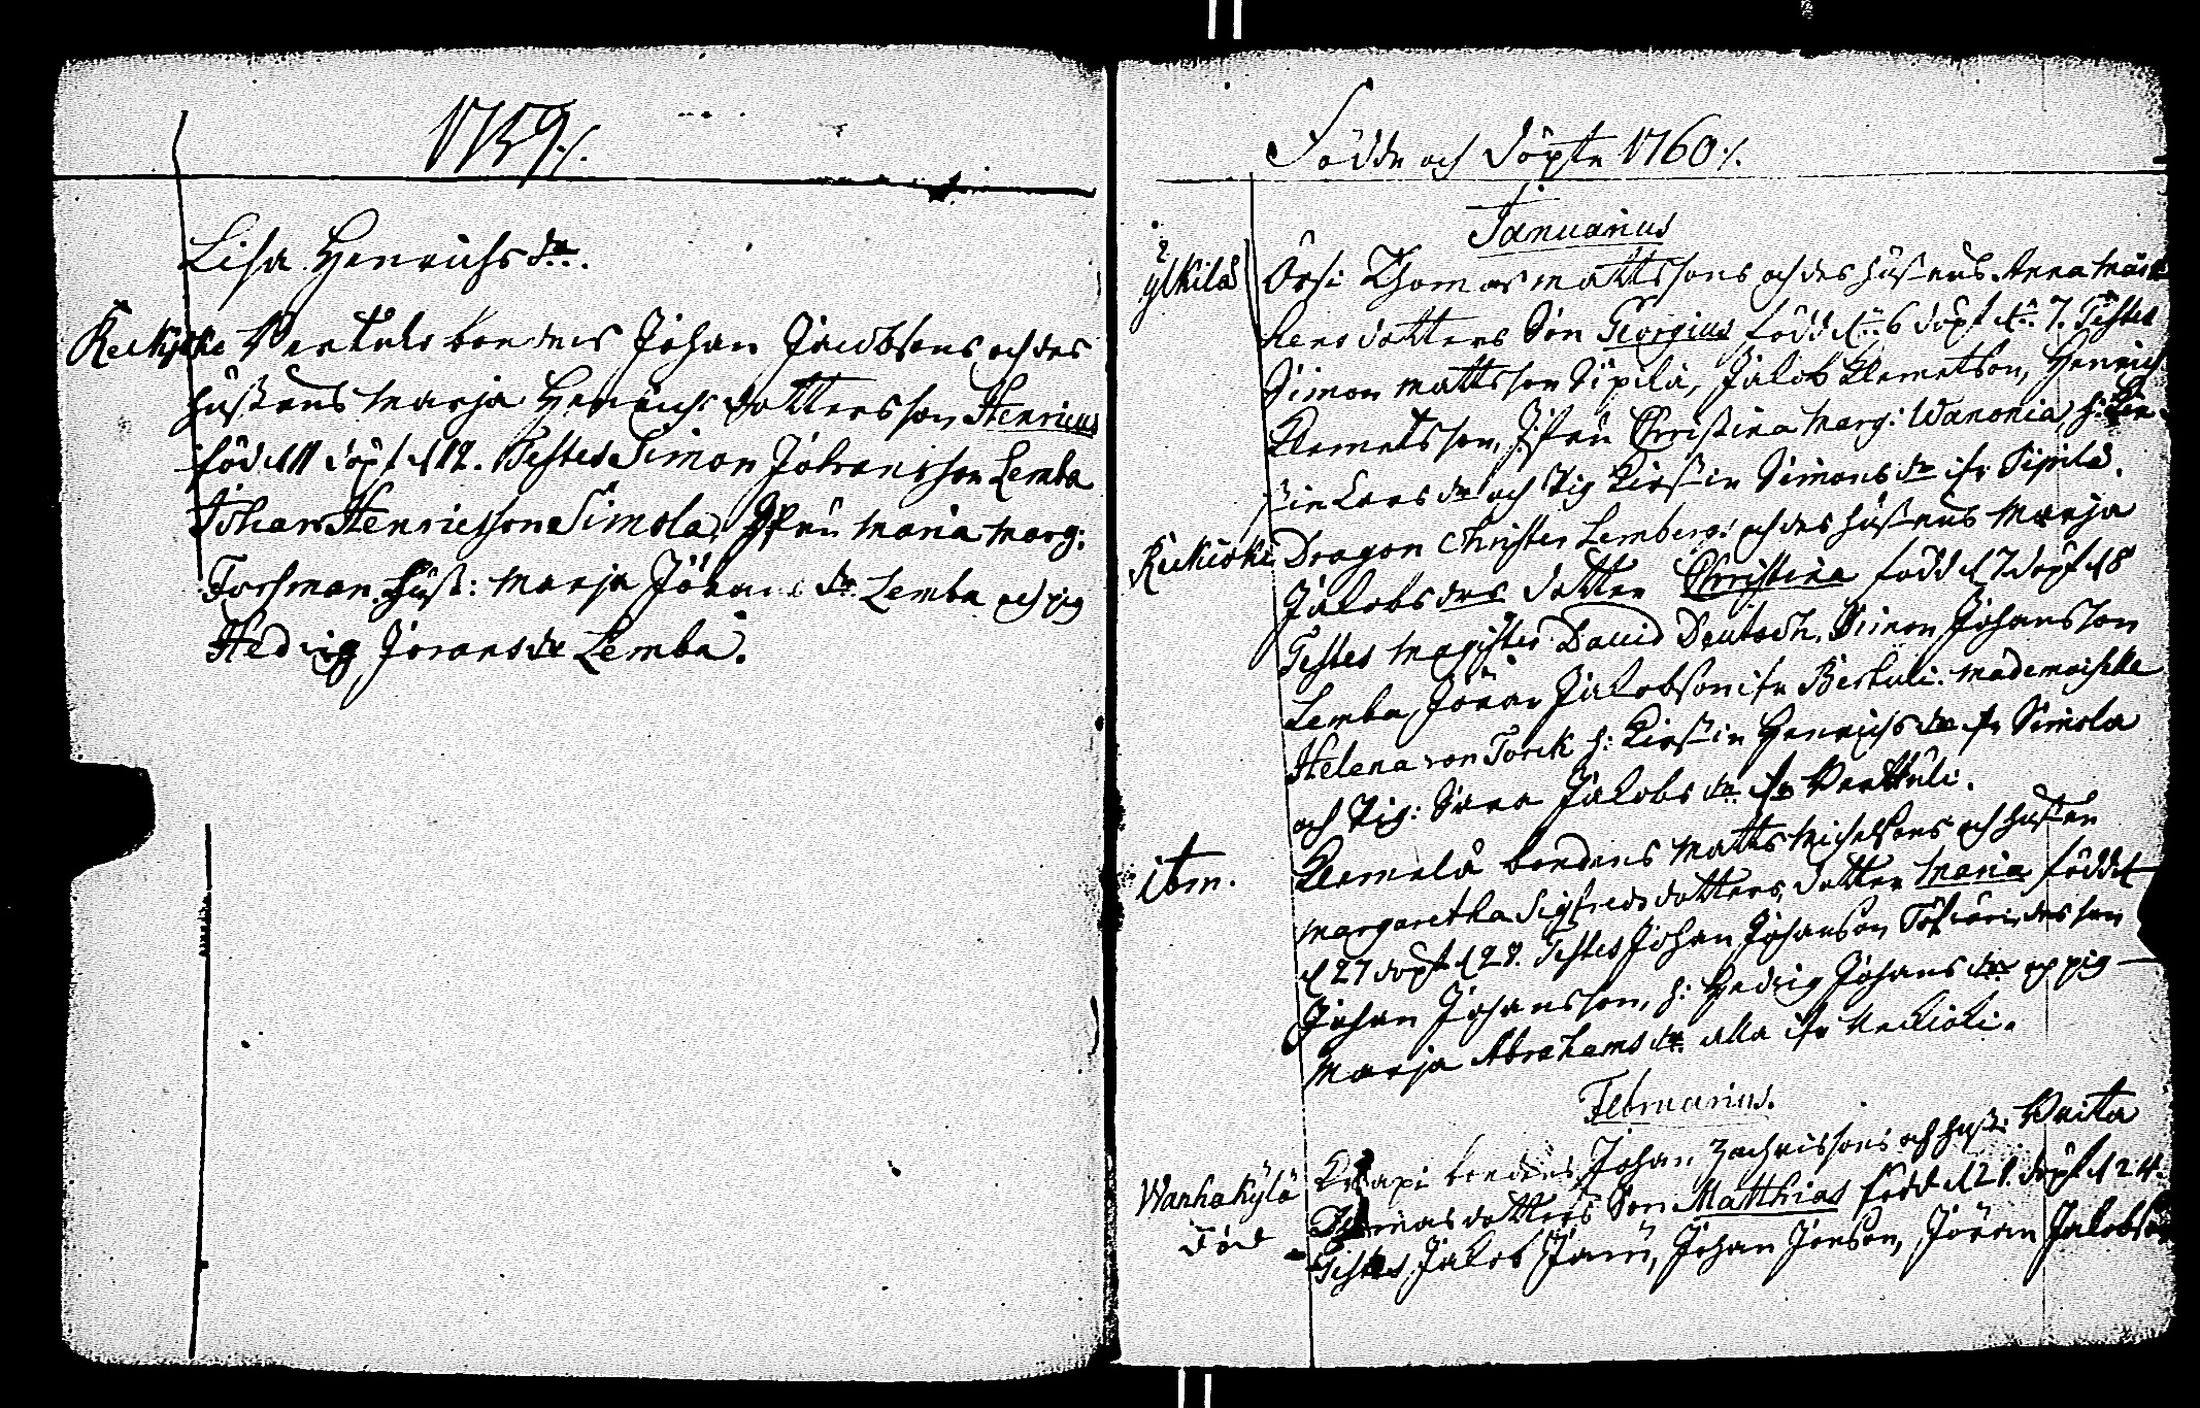 1759./.
Lisa Henrichs dr.
Keckijerki Pertule bondens Johan Jacobsons och des
hustrus Marja Henrichs dotters son Henricus
född d 11 döpt d 12. Testes Simon Johansson Lemba
Johan Henricsson Simola, Jfru Maria Marg:
Forsman hust: Marja Jörans dr Lemba och pig
Hedvig Jörans dr Lemba.
Födde och döpte 1760./.
Januarius
ylkilä
Orsi Thomas Mattssons och des hustrus Anna
dotters Son Georgius född d: 6 döpt d: 7. Testes
Simon Mattsson Sipilä, Jakob Klemetson, Henrich
Klemetsson, Jfru Christina Marg: Wanonia, h:
Lars dr och Pig Kirstin Simons dr ifr Sipilä.
Dragon Christer Lemberg och des hustrus Marja
Jakobs des dotter Christina född d 7 döpt d 8
Testes Magister David Deutsch, Simon Johansson
Lemba, Jöran Jakobson ifr Bertuli. Mademoiselle
Helena von Torck h: Kirstin Henrichs dr ifr Simola
och Pig: Anna Jakobs dr ifr Perttuli.
itm.
Klemelä bondens Matts Michelsons och hustru
Margaretha Sigfreds dotters, dotter Maria född
d 27 döpt d 28. Testes Johan Johanson des son
Johan Johansson, h: Hedvig Johans dr och pig
Marja Abrahams dr alla ifr Keckioki.
Februarius.
Wanhakylä
Knapi bondens Johan Zachrissons och hust: Brita
Thomas dotters Son Matthias född d 21. döpt d 24.
död
Testes Jakob Jani, Johan Jonson, Jöran Jakobson